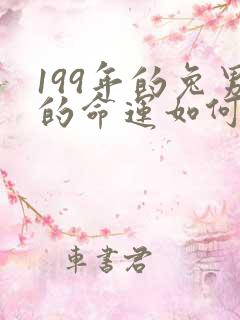 199年的兔男
的命运如何
车书君